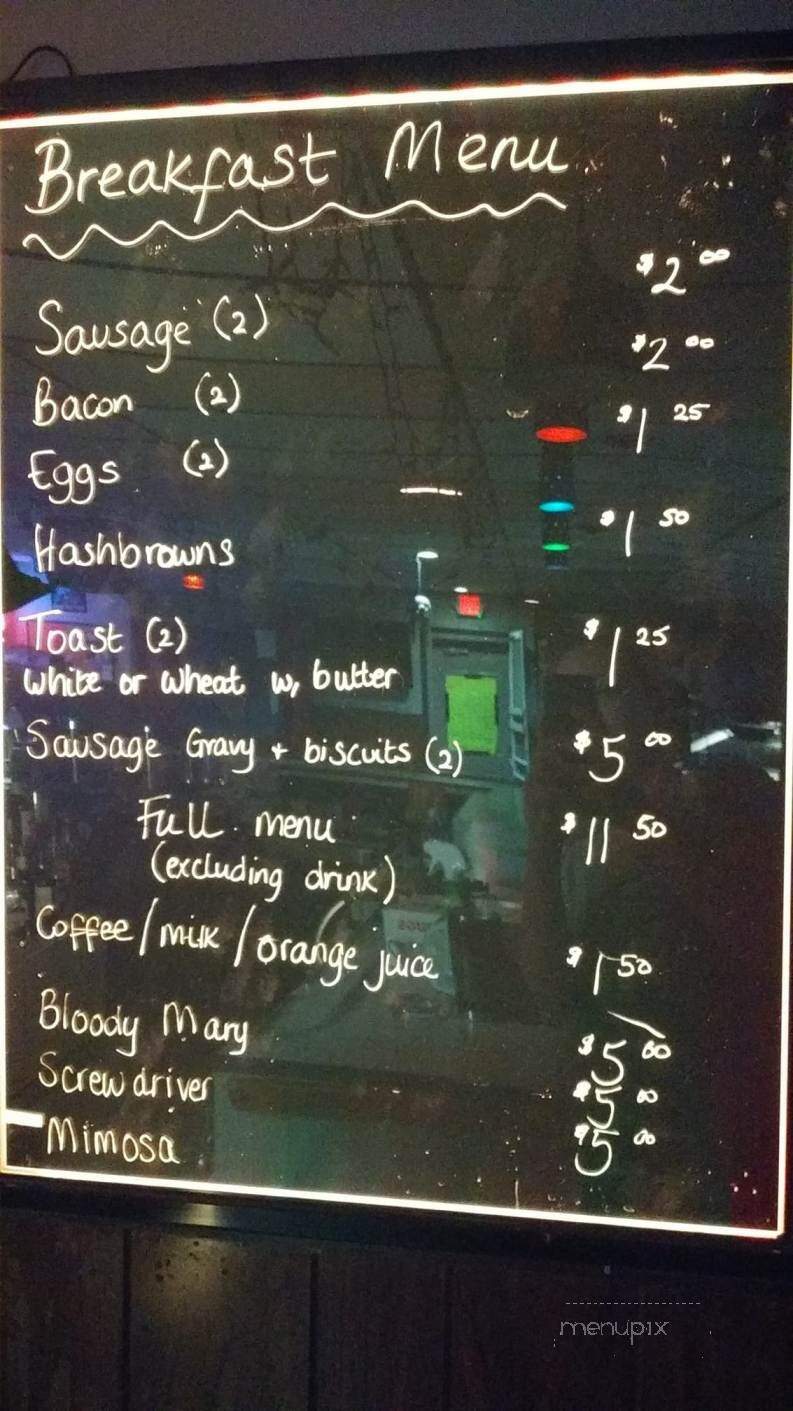 Breakfast Menu
Sausage (2) $2 00
Bacon (2) $2 00
Eggs (2) $1 25
Hashbrowns $1 50
Toast (2) $1 25
White or Wheat w, butter
Sausage Gravy + biscuits (2) $5 00
Full menu $11 50
(excluding drink)
Coffee/milk/orange juice $1 50
Bloody Mary $5 00
Screwdriver $5 00
Mimosa $5 00
menupix